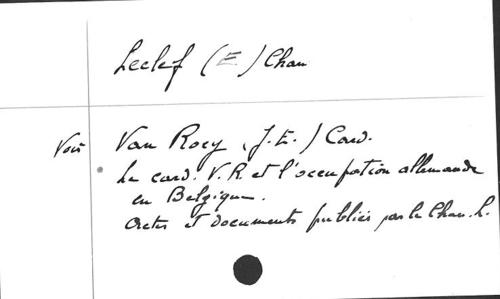 Leclef (E) Chan
Voir Van Roey (J.E.) Card.
Le card. V.R. et l'occupation allemande
en Belgique.
Actes et documents publiés par le Chan. L.